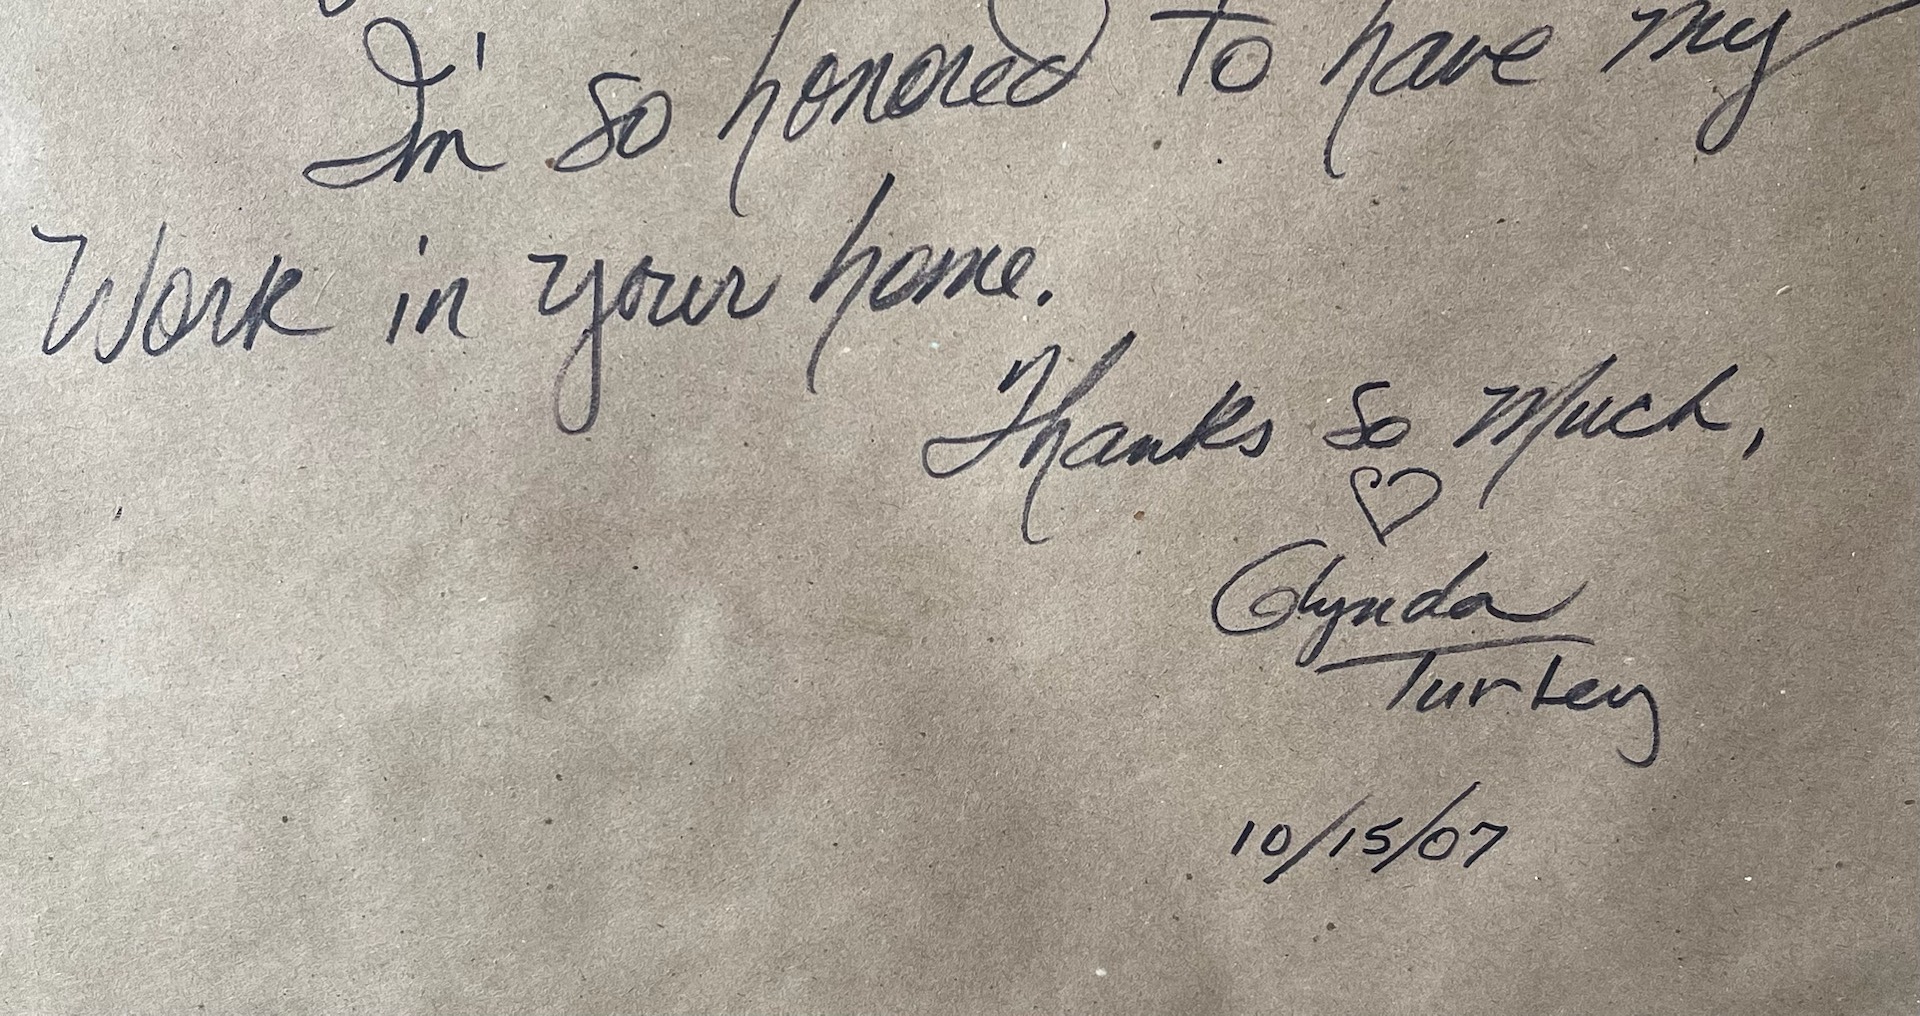 I'm so honored to have my
Work in your home.
Thanks so much,
♡
Glynda
Turkey
10/15/07